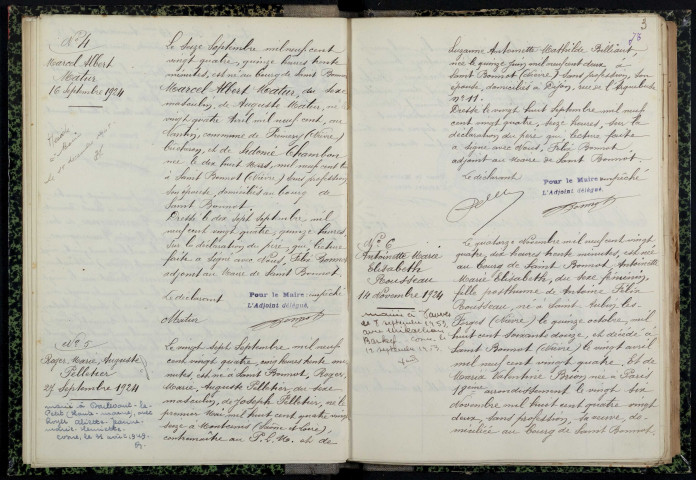 N° 4
Marcel Albert
Matier
16 Septembre 1924
Le Seize Septembre mil neuf cent
vingt quatre, quinze heures trente
minutes, est né au bourg de Saint Bonnot
Marcel Albert Matier, du sexe
masculin, de Auguste Matier, né le
vingt quatre Avril mil neuf cent, au
commune de Prémery (Nièvre)
et de Sidonie Chambon
née le dix huit Mars, mil neuf cent
à Saint Bonnot (Nièvre) Sans profession
Son épouse, domiciliés au bourg de
Saint Bonnot.
Dressé le dix Sept Septembre mil
neuf cent vingt quatre, quinze heures,
Sur la déclaration du père, qui, lecture
faite a Signé avec Nous, Félix Bonnot
adjoint au Maire de Saint Bonnot.
Le déclarant
Pour le Maire empêché
L'Adjoint délégué,
Matier
N° 5
Roger Marie Auguste
Pelletier
27 Septembre 1924
Le vingt Sept Septembre mil neuf
cent vingt quatre, cinq heures trente
minutes, est né à Saint Bonnot, Roger,
Marie, Auguste Pelletier, du sexe
masculin, de Joseph Pelletier, né le
premier Mai mil huit cent quatre vingt
seize à Montcenis (Saône et Loire),
au P.L.M. et de
3
Suzanne Antoinette Mathilde Billiaut,
née le quinze Juin mil neuf cent deux, à
Saint Bonnot (Nièvre) Sans profession, Son
épouse, domiciliés à Dijon, rue de l'Arquebuse
N° 11.
Dressé le vingt huit Septembre mil neuf
cent vingt quatre, seize heures, Sur la
déclaration du père qui, lecture faite
a signé avec Nous, Félix Bonnot
adjoint au Maire de Saint Bonnot.
Le déclarant
Pour le Maire empêché
L'Adjoint délégué,
N° 6
Antoinette Marie
Elisabeth
Rousseau
14 Novembre 1924
Le quatorze Novembre mil neuf cent vingt
quatre, dix heures trente minutes, est née
au bourg de Saint Bonnot, Antoinette
Marie Elisabeth, du sexe féminin,
fille posthume de Antoine Félix
Rousseau, né à Saint Aubin les
Forges (Nièvre) le quinze octobre, mil
huit cent soixante douze, et décédé à
Saint Bonnot (Nièvre) le vingt avril
mil neuf cent vingt quatre, et de
Maria Valentine née à Paris
arrondissement le vingt six
Novembre mil huit cent quatre vingt
deux, Sans profession, Sa veuve, domiciliée
au bourg de Saint Bonnot.